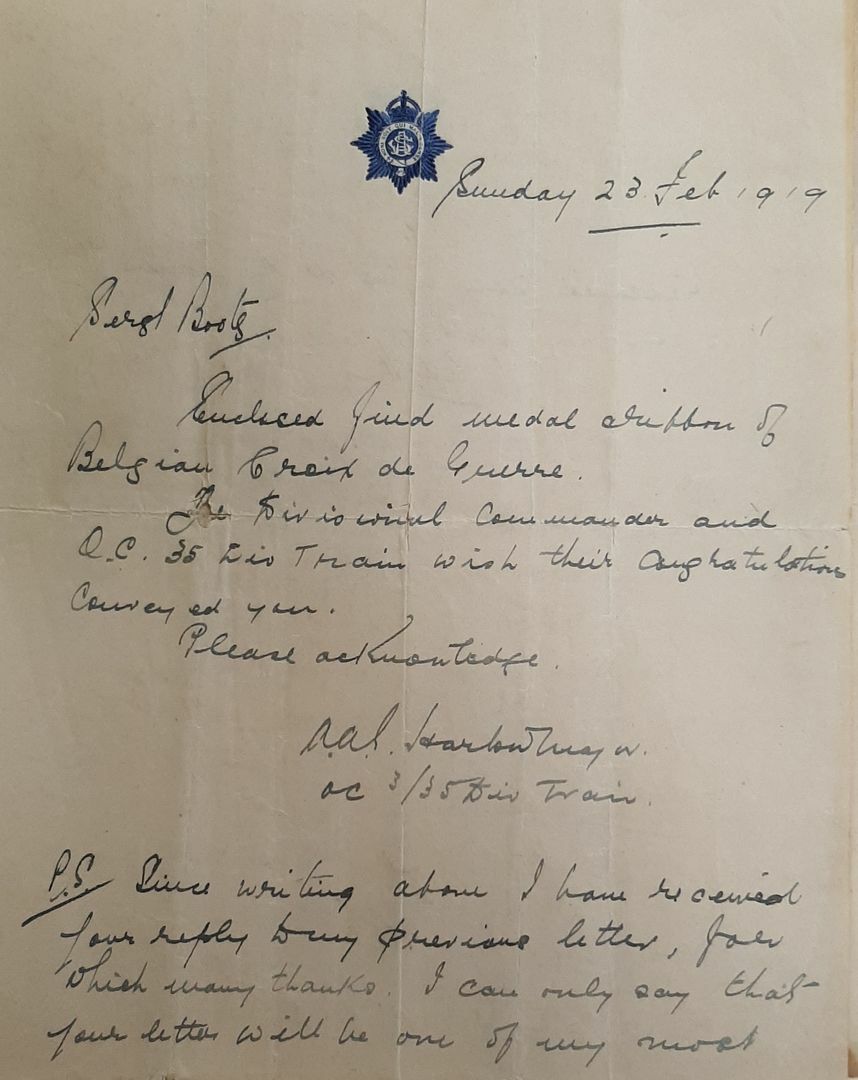 Sunday 23 Feb 1919
Sergt Boots.
Enclosed find medal ribbon of
Belgian Croix de Guerre.
The Divisional Commander and
O.C. 35 Div Train wish their Congratulations
Conveyed you.
Please acknowledge.
Major.
OC 3/35 Div Train.
P.S. Since writing above I have received
your reply to my previous letter, for
which many thanks. I can only say that
your letter will be one of my most